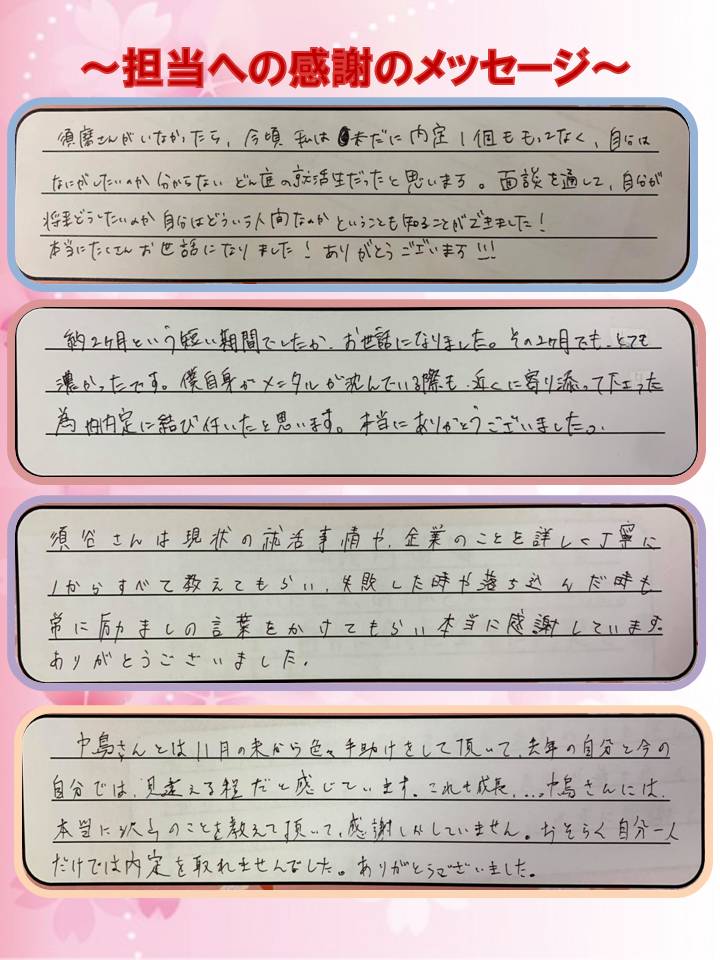 ～担当への感謝のメッセージ～
須磨さんがいなかったら、今頃 私は 未だに 内定 1個ももってなく、自分は
なにがしたいのか 分からない どん底の就活生だったと思います。面談を通して、自分が
将来どうしたいのか 自分はどういう人間なのか ということも知ることができました！
本当にたくさん お世話になりました！ ありがとうございます!!!
約2ヶ月という短い期間でしたが、お世話になりました。その2ヶ月でも、とても
濃かったです。僕自身がメンタルが沈んでいる際も、近くに寄り添って下さった
為 内定に結び付いたと思います。本当にありがとうございました。
須谷さんは現状の就活事情や、企業のことを詳しく丁寧に
1からすべて教えてもらい、失敗した時や落ち込んだ時も
常に励ましの言葉をかけてもらい本当に感謝しています。
ありがとうございました。
中島さんとは11月の末から色々手助けをして頂いて、去年の自分と今の
自分では、見違える程だと感じています。これも成長...。中島さんには、
本当に沢山のことを教えて頂いて、感謝しかしていません。おそらく自分一人
だけでは内定を取れませんでした。ありがとうございました。